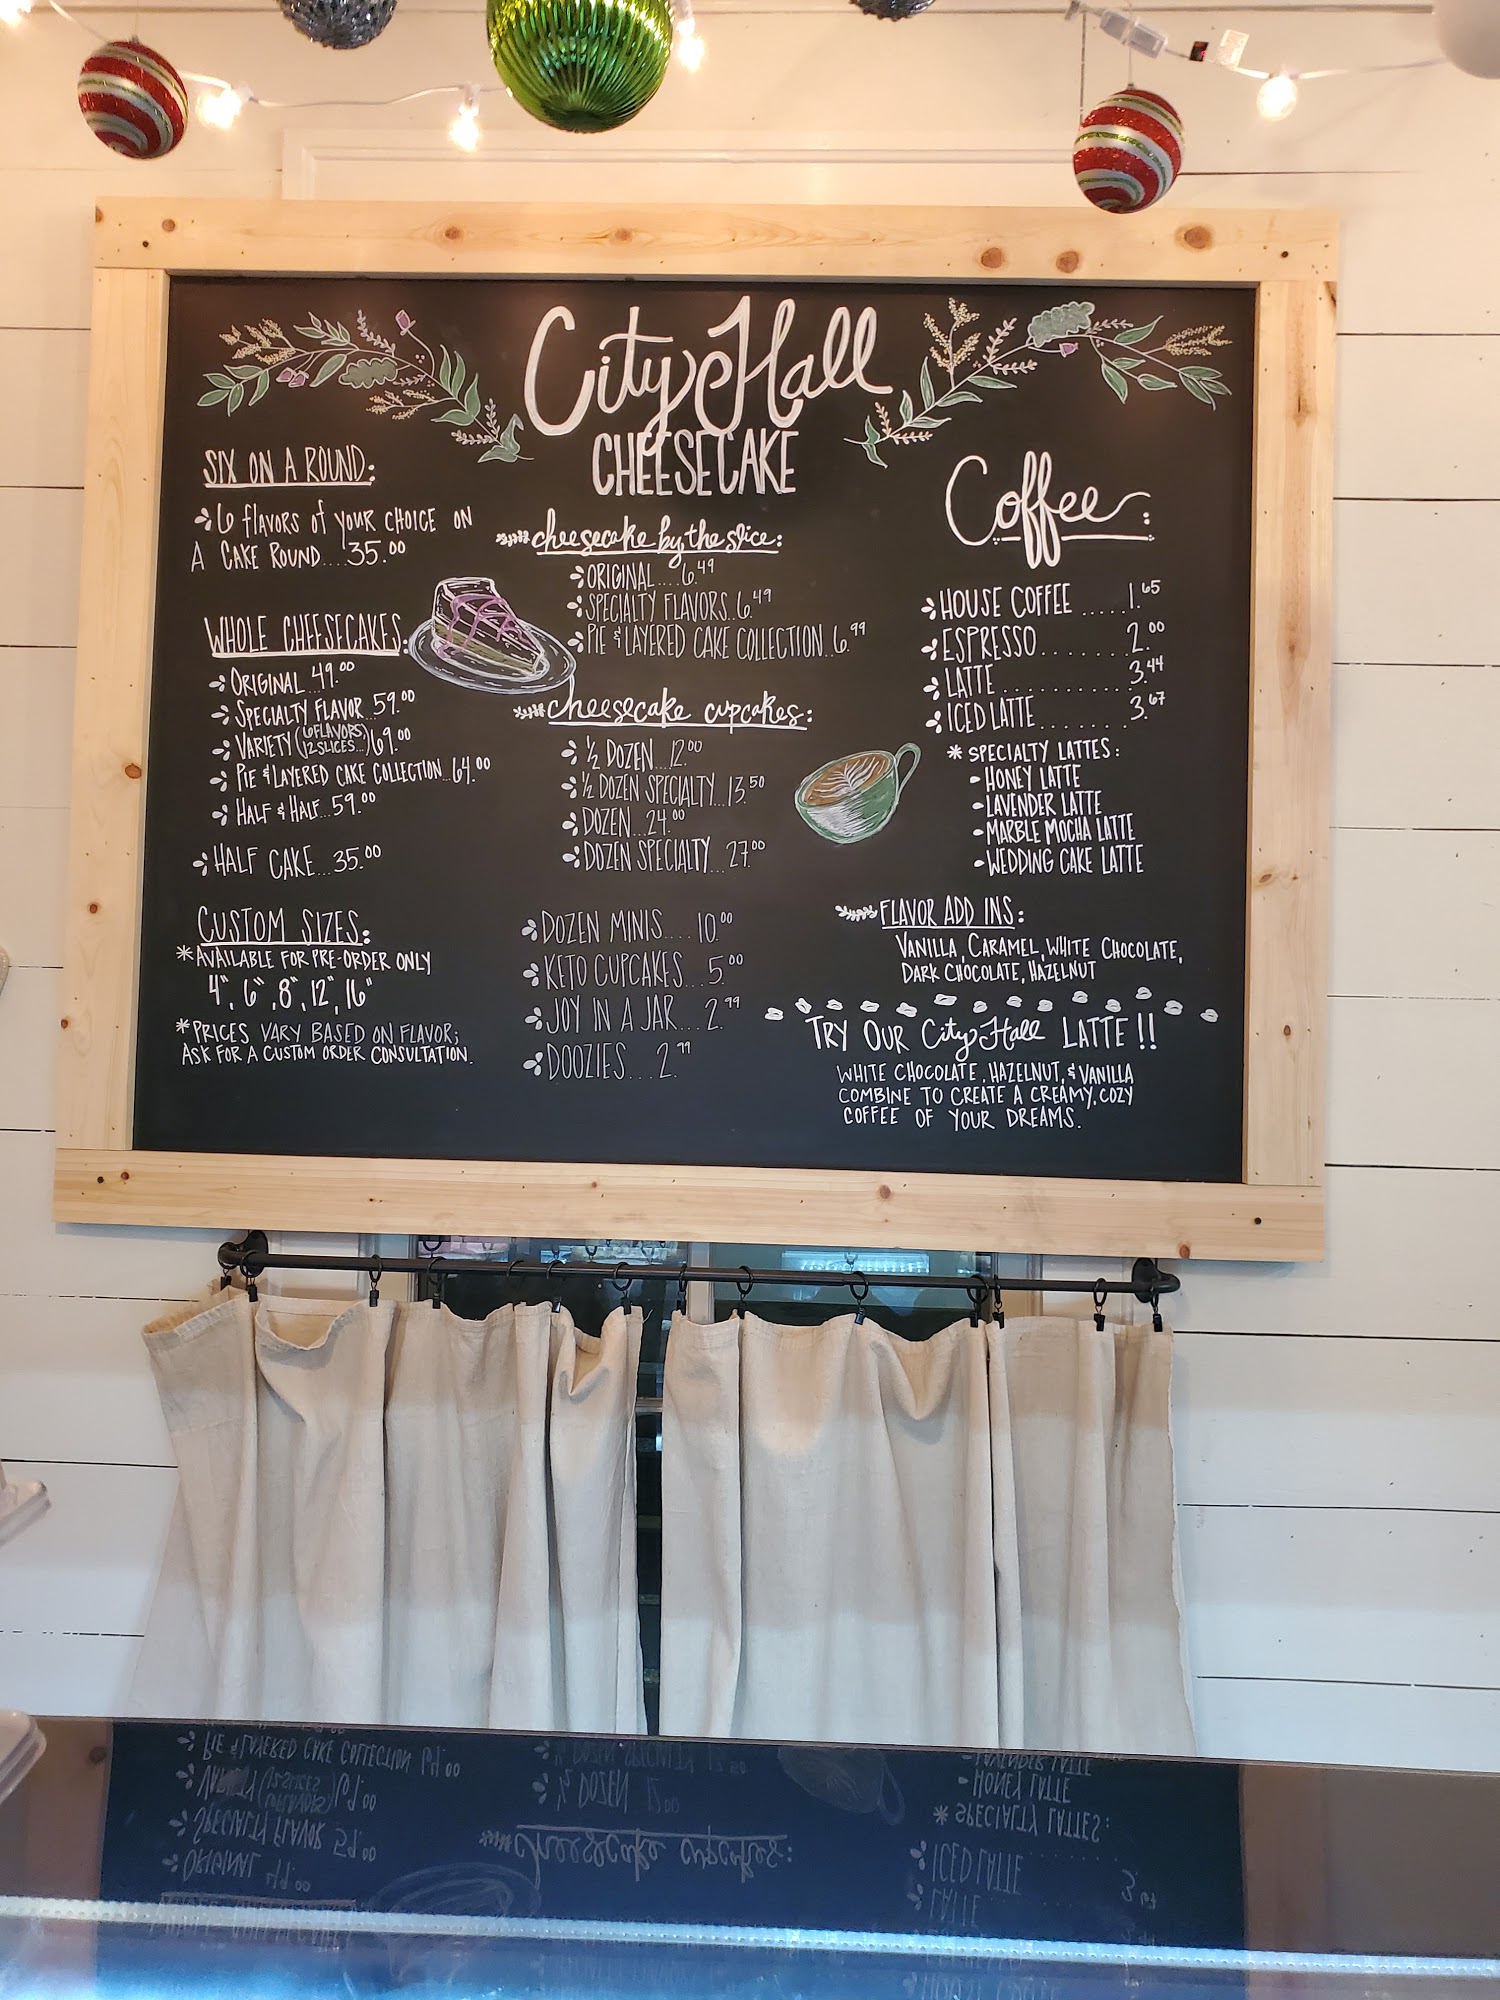 City Hall
CHEESECAKE
SIX ON A ROUND:
6 flavors of your CHOICE ON
A CAKE ROUND....35.00
WHOLE CHEESECAKES:
ORIGINAL...49.00
SPECIALTY FLAVOR...59.00
VARIETY (6 FLAVORS/ 12 SLICES...) 69.00
PIE & LAYERED CAKE COLLECTION...64.00
HALF & HALF...59.00
HALF CAKE...35.00
CUSTOM SIZES:
*AVAILABLE FOR PRE-ORDER ONLY
4", 6", 8", 12", 16"
*PRICES VARY BASED ON FLAVOR;
ASK FOR A CUSTOM ORDER CONSULTATION.
cheesecake by the slice:
ORIGINAL....6.49
SPECIALTY FLAVORS..6.49
PIE & LAYERED CAKE COLLECTION..6.99
cheesecake cupcakes:
½ DOZEN...12.00
½ DOZEN SPECIALTY...13.50
DOZEN...24.00
DOZEN SPECIALTY...27.00
DOZEN MINIS....10.00
KETO CUPCAKES...5.00
JOY IN A JAR...2.99
DOOZIES...2.99
Coffee:
HOUSE COFFEE.....1.65
ESPRESSO.......2.00
LATTE...........3.44
ICED LATTE.......3.67
* SPECIALTY LATTES:
- HONEY LATTE
- LAVENDER LATTE
- MARBLE MOCHA LATTE
- WEDDING CAKE LATTE
FLAVOR ADD INS:
VANILLA, CARAMEL, WHITE CHOCOLATE,
DARK CHOCOLATE, HAZELNUT
TRY OUR City Hall LATTE!!
WHITE CHOCOLATE, HAZELNUT, & VANILLA
COMBINE TO CREATE A CREAMY, COZY
COFFEE OF YOUR DREAMS.